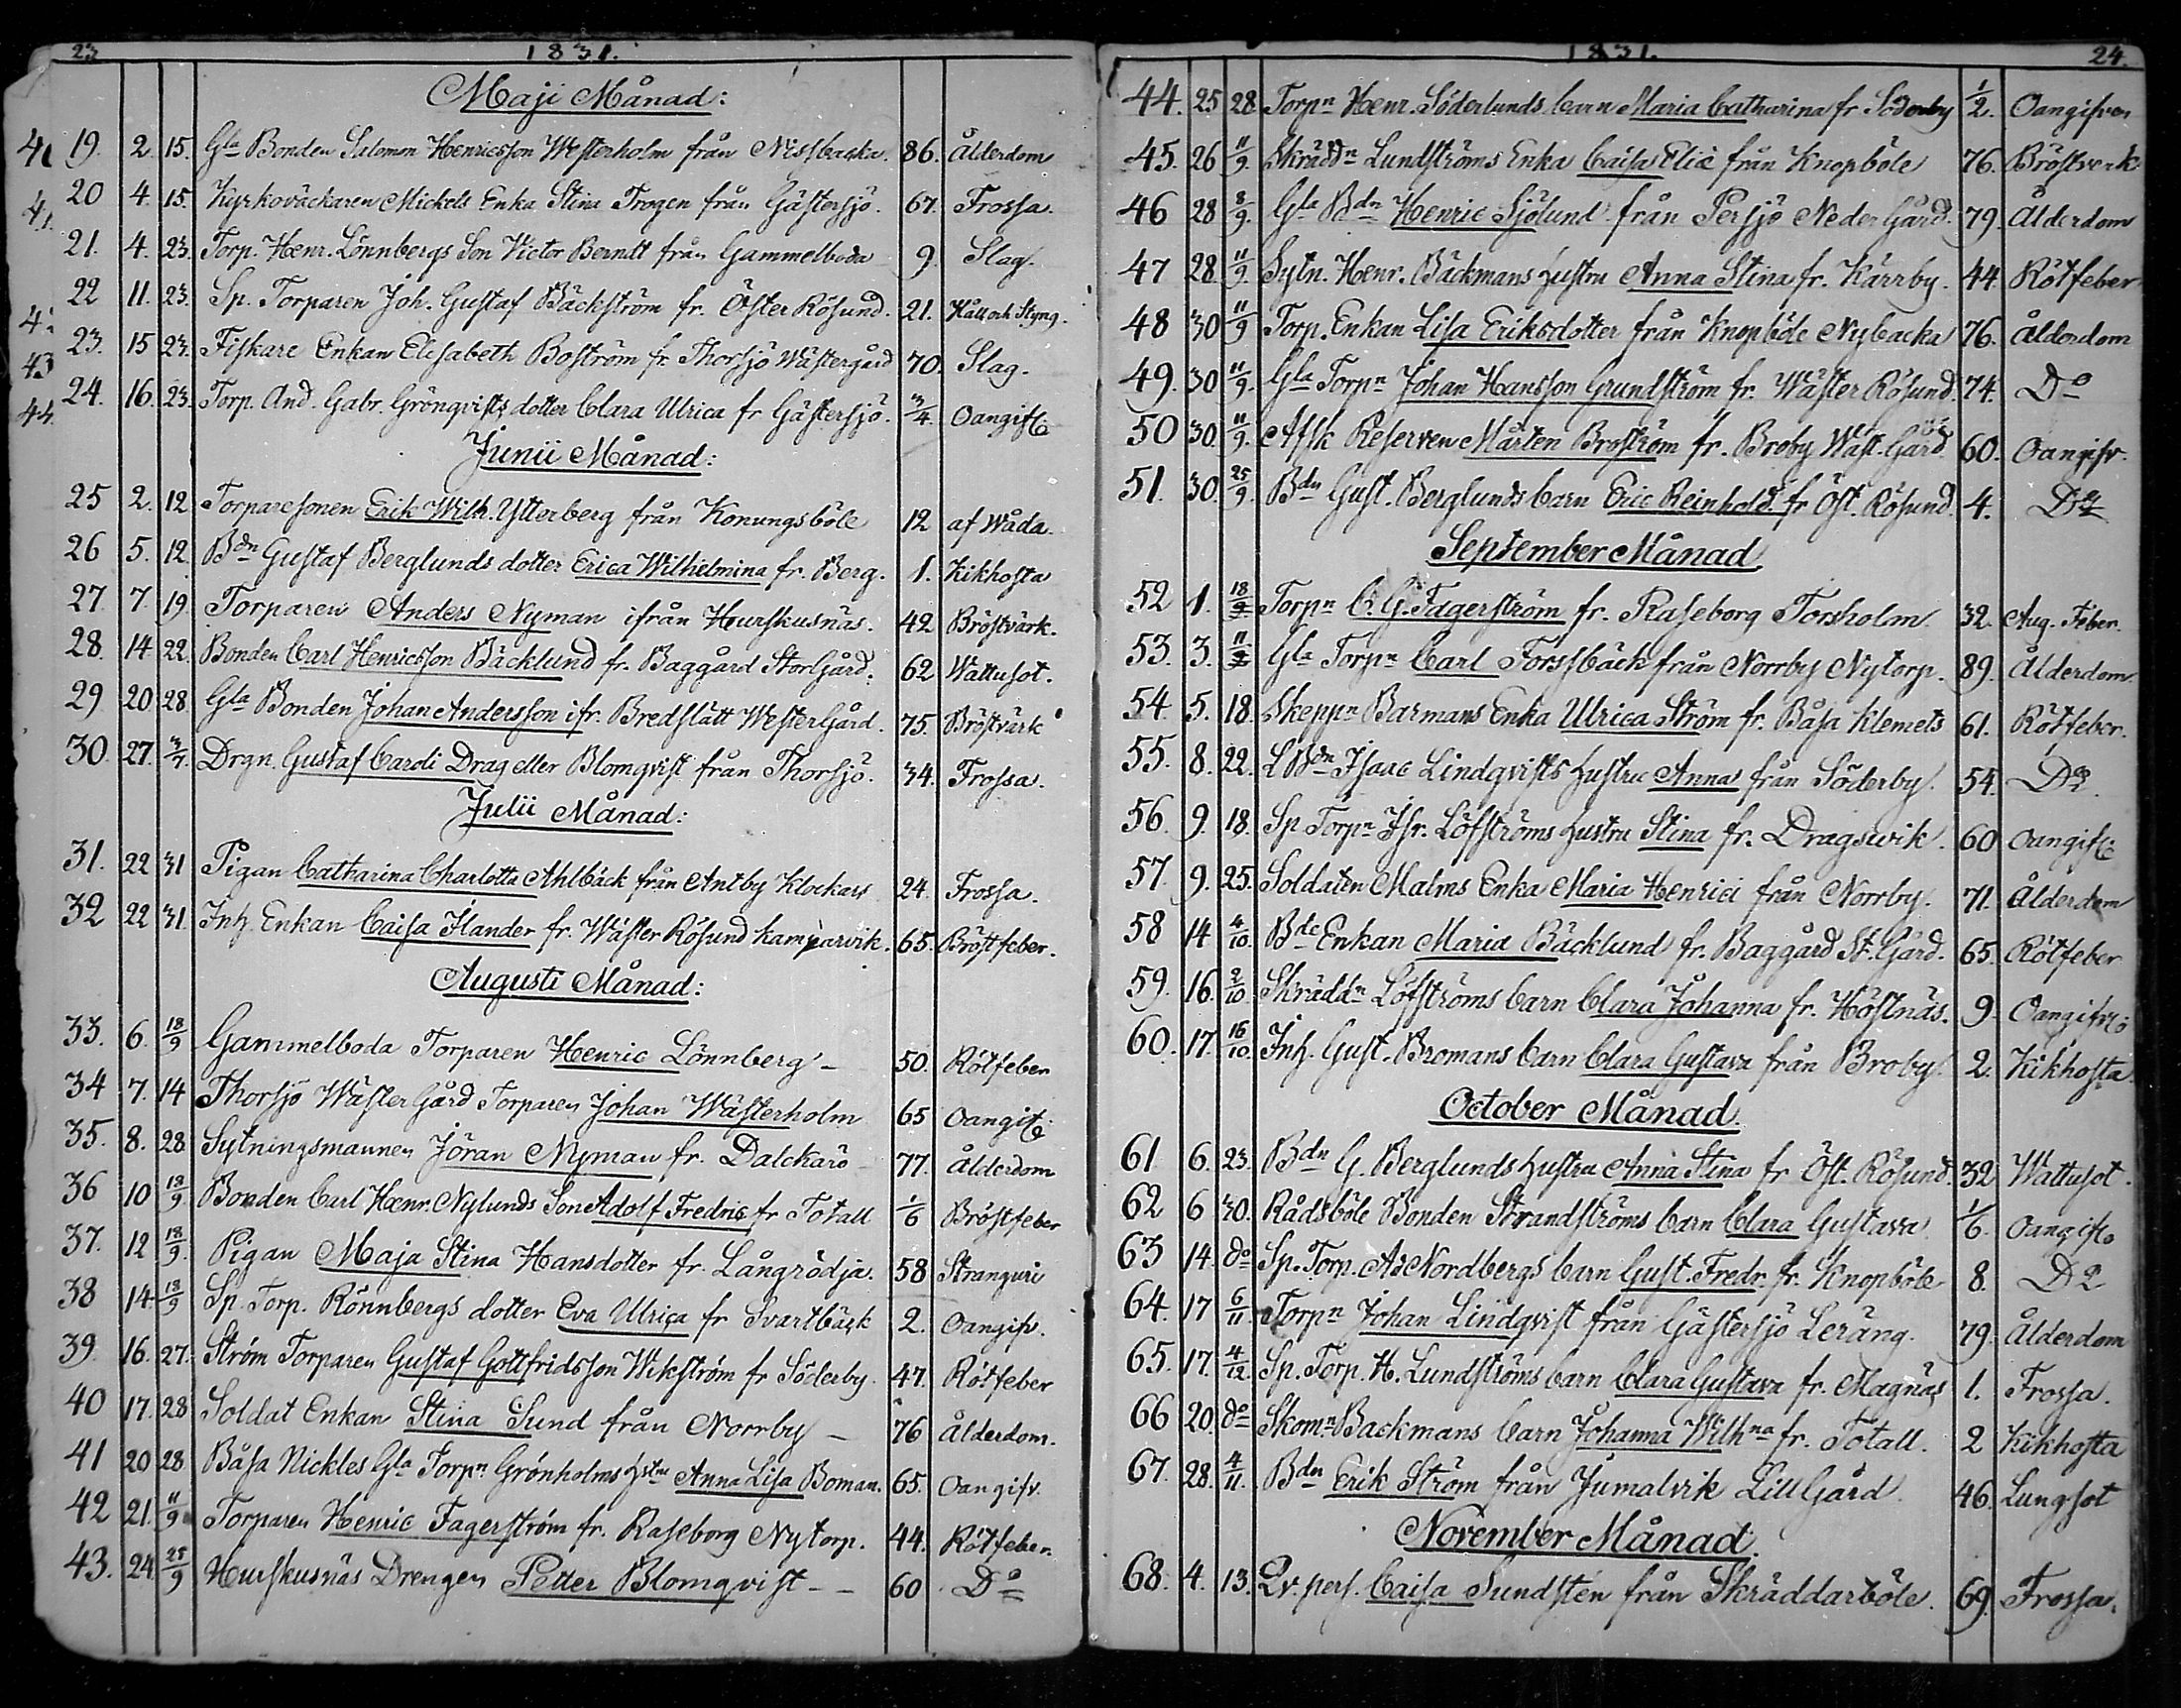 23
1831.
Maji Månad:
19. 2. 15. Gla Bonden Salomon Henricsson Westerholm från Nissbacka. 86. Ålderdom
20 4. 15. Kyrkoväckaren Mickels Enka Stina Trogen från Gästersjö. 67. Frossa.
21. 4. 23. Torp. Henr. Lönnbergs Son Victor Berndt från Gammelboda 9. Slag.
22 11. 23. Sp. Torparen Joh. Gustaf Bäckström fr. Öster Rösund. 21. Håll och Styng.
23. 15 23. Fiskare Enkan Elisabeth Boström fr. Thorsjö Wästergård 70. Slag.
24. 16. 23. Torp. And. Gabr. Grönqvists dotter Clara Ulrica fr Gästersjö. 3/4. Oangift
Junii Månad:
25 2. 12 Torparesonen Erik Wilh. Ytterberg från Konungsböle 12 af Wåda.
26 5. 12. Bdn Gustaf Berglunds dotter Erica Wilhelmina fr. Berg. 1. Kikhosta
27. 7. 19 Torparen Anders Nyman ifrån Hurskusnäs. 42 Bröstvärk.
28. 14 22. Bonden Carl Henricsson Bäcklund fr. Baggård Storgård. 62 Wattusot.
29 20 28. Gla Bonden Johan Andersson ifr. Bredslätt WesterGård. 75. Bröstvärk
30. 27. 3/7. Drgn. Gustaf Caroli Drag eller Blomqvist från Thorsjö. 34. Frossa.
Julii Månad:
31. 22 31 Pigan Catharina Charlotta Ahlbäck från Antby Klockars 24. Frossa.
32 22 31. Inh. Enkan Caisa Ilander fr. Wäster Rösund Kamparvik. 65. Bröstfeber.
Augusti Månad:
33. 6. 18/9 Gammelboda Torparen Henric Lönnberg – 50. Rötfeber
34 7. 14 Thorsjö Wäster Gård Torparen Johan Wästerholm 65 Oangift
35. 8. 28. Sytningsmannen Jöran Nyman fr. Dalckarö 77. Ålderdom
36 10 18/9. Bonden Carl Henr. Nylunds Son Adolf Fredric fr Totall 1/6 Bröstfeber
37. 12 18/9. Pigan Maja Stina Hansdotter fr. Långrödja. 58 Stranguri
38 14. 18/9 Sp. Torp. Rönnbergs dotter Eva Ulrica fr Svartbäck 2. Oangifv.
39. 16. 27. Ström Torparen Gustaf Gottfridsson Wikström fr Söderby. 47. Rötfeber
40 17. 28 Soldat Enkan Stina Sund från Norrby – 76 Ålderdom.
41 20 28 Båsa Nickles Gla Torpn Grönholms Hstru Anna Lisa Boman. 65. Oangifv.
42 21. 11/9 Torparen Henric Fagerström fr. Raseborg Nytorp. 44. Rötfeber.
43. 24. 25/9 Hurskusnäs Drengen Petter Blomqvist – – 60 Do
1831.
24.
44. 25 28. Torpn Henr. Söderlunds barn Maria Catharina fr Söderby 1/2. Oangifven
45. 26 11/9. Skräddn Lundströms Enka Caisa Elié från Knopböle 76. Bröstverk
46 28 8/9. Gla Bdn Henric Sjölund från Persjö Neder Gård. 79. Ålderdom
47 28. 11/9. Sytn. Henr. Bäckmans hustru Anna Stina fr. Kärrby. 44. Rötfeber
48 30 11/9 Torp. Enkan Lisa Eriksdotter från Knopböle Nybacka 76. Ålderdom
49. 30 11/9. Gla Torpn Johan Hansson Grundström fr. Wäster Rösund. 74. Do
50 30. 11/9. Afsk Reserven Mårten Broström fr. Broby Wäst. Gård 60. Oangifv.
51. 30. 25/9. Bdn Gust. Berglunds barn Eric Reinhold fr Öst. Rösund. 4. Do
September Månad
52 1. 18/9 Torpn C. G. Fagerström fr. Raseborg Torsholm 32. Aug. Feber.
53. 3. 11/9 Gla Torpn Carl Forssbäck från Norrby Nytorp. 89. Ålderdom.
54. 5. 18. Skeppn Barmans Enka Ulrica Ström fr. Båsa Klemets 61. Rötfeber.
55. 8. 22. L Bdn Isaac Lindqvists hustru Anna från Söderby. 54. Do
56. 9. 18. Sp Torpn Isr. Löfströms hustru Stina fr. Dragsvik. 60 Oangift
57. 9. 25. Soldaten Malms Enka Maria Henrici från Norrby. 71. Ålderdom
58 14 4/10. Bde Enkan Maria Bäcklund fr. Baggård St. Gård. 65. Rötfeber
59. 16. 2/10 Skräddn Löfströms barn Clara Johanna fr. Höstnäs. 9. Oangifv
60. 17. 16/10. Inh. Gust. Bromans barn Clara Gustava från Broby. 2. Kikhosta.
October Månad.
61 6. 23. Bdn G. Berglunds hustru Anna Stina fr Öst. Rösund. 32 Wattusot.
62 6 30. Rådsböle Bonden Strandströms barn Clara Gustava. 1/6. Oangift
63 14. do Sp. Torp. A. Nordbergs barn Gust. Fredr. fr. Knopböle 8. Do
64. 17 6/11. Torpn Johan Lindqvist från Gästersjö Leräng. 79. Ålderdom
65. 17. 4/12. Sp. Torp. H. Lundströms barn Clara Gustava fr. Magnäs 1. Frossa.
66 20. do Skomn Backmans barn Johanna Wilhna fr. Totall. 2 Kikhosta
67. 28. 4/11. Bdn Erik Ström från Jumalvik LillGård. 46. Lungsot
November Månad.
68. 4. 13. Qv. pers. Caisa Sundstén från Skräddarböle. 69. Frossa.